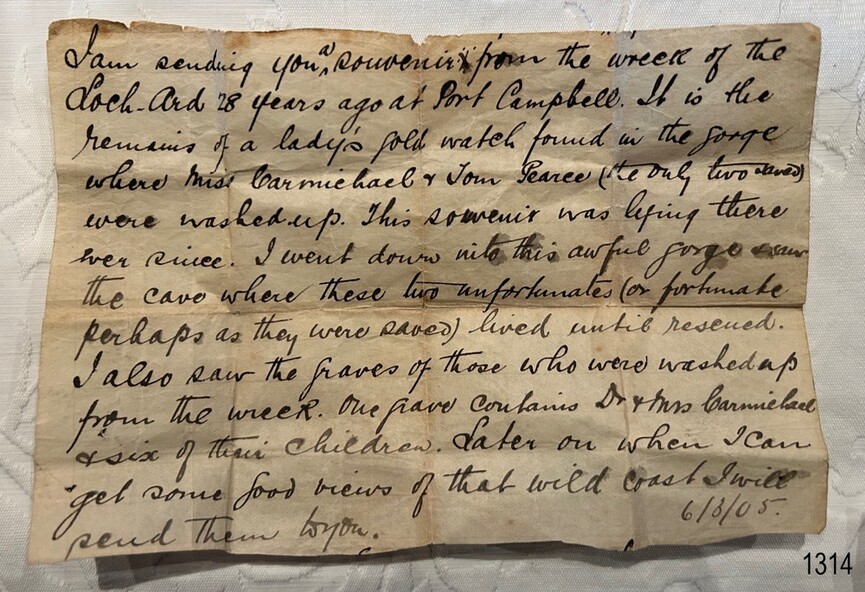 I am sending you a souvenir from the wreck of the
Loch-Ard 28 years ago at Port Campbell. It is the
remains of a lady's gold watch found in the gorge
where Miss Carmichael & Tom Pearce (the only two saved)
were washed up. This souvenir was lying there
ever since. I went down into this awful gorge & saw
the cave where these two unfortunates (or fortunate
perhaps as they were saved) lived until rescued.
I also saw the graves of those who were washed up
from the wreck. One grave contains Dr & Mrs Carmichael
& six of their children. Later on when I can
get some good views of that wild coast I will
send them to you.
6/8/05.
1314